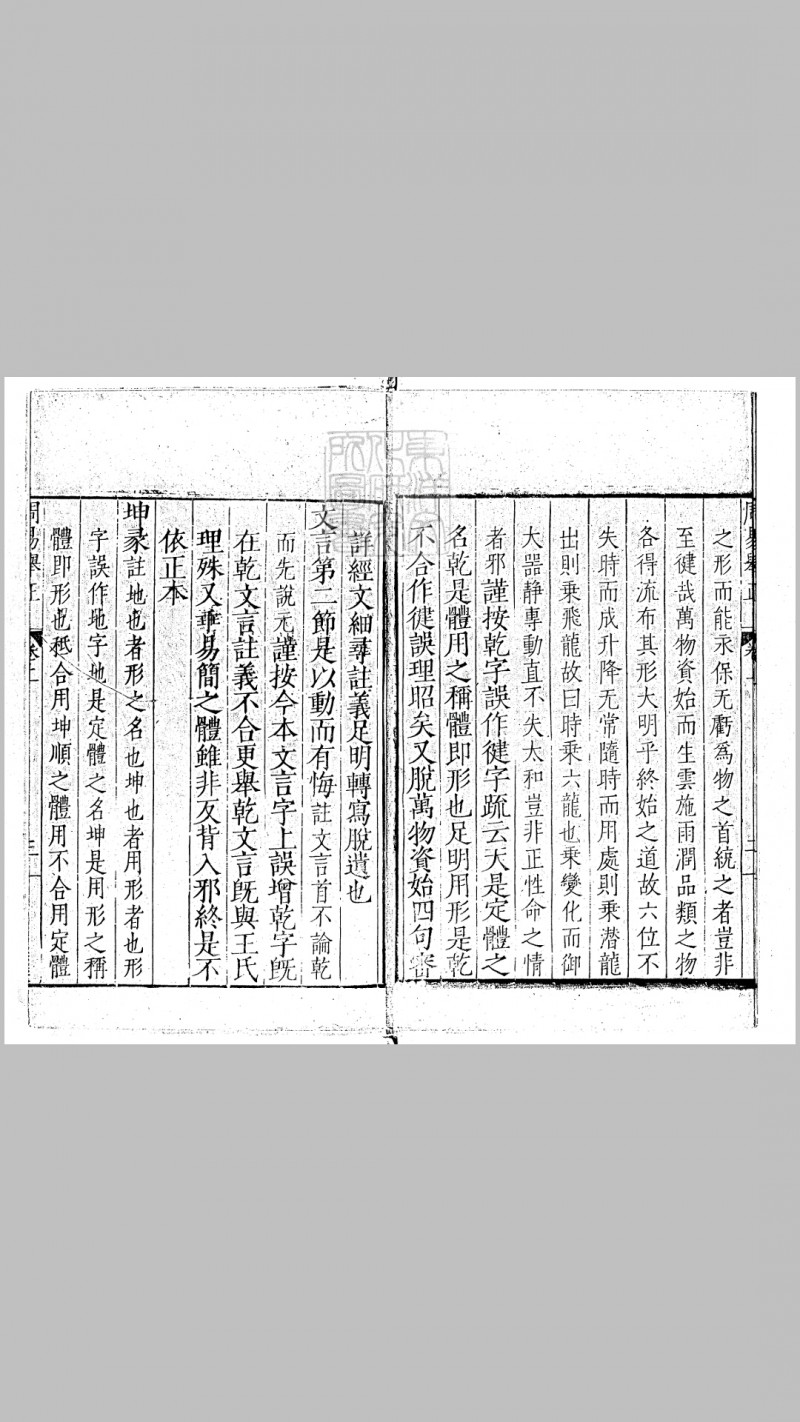 之形而能永保无虧爲物之首統之者豈非
至健哉萬物資始而生雲施雨潤品類之物
各得流布其形大明乎終始之道故六位不
失時而成升降无常隨時而用處則乘潛龍
出則乘飛龍故曰時乘六龍也乘變化而御
大器靜專動直不失太和豈非正性命之情
者邪謹按乾字誤作健字疏云天是定體之
名乾是體用之稱體即形也足明用形是乾
不合作健誤理昭矣又脫萬物資始四句審
詳經文細尋註義足明轉寫脫遺也
文言第二節是以動而有悔註文言首不論乾
而先說元謹按今本文言字上誤增乾字旣
在乾文言註義不合更舉乾文言旣與王氏
理殊又乖易簡之體雖非反背入邪終是不
依正本
坤彖註地也者形之名也坤也者用形者也形
字誤作地字地是定體之名坤是用形之稱
體即形也秖合用坤順之體用不合用定體
周易舉正